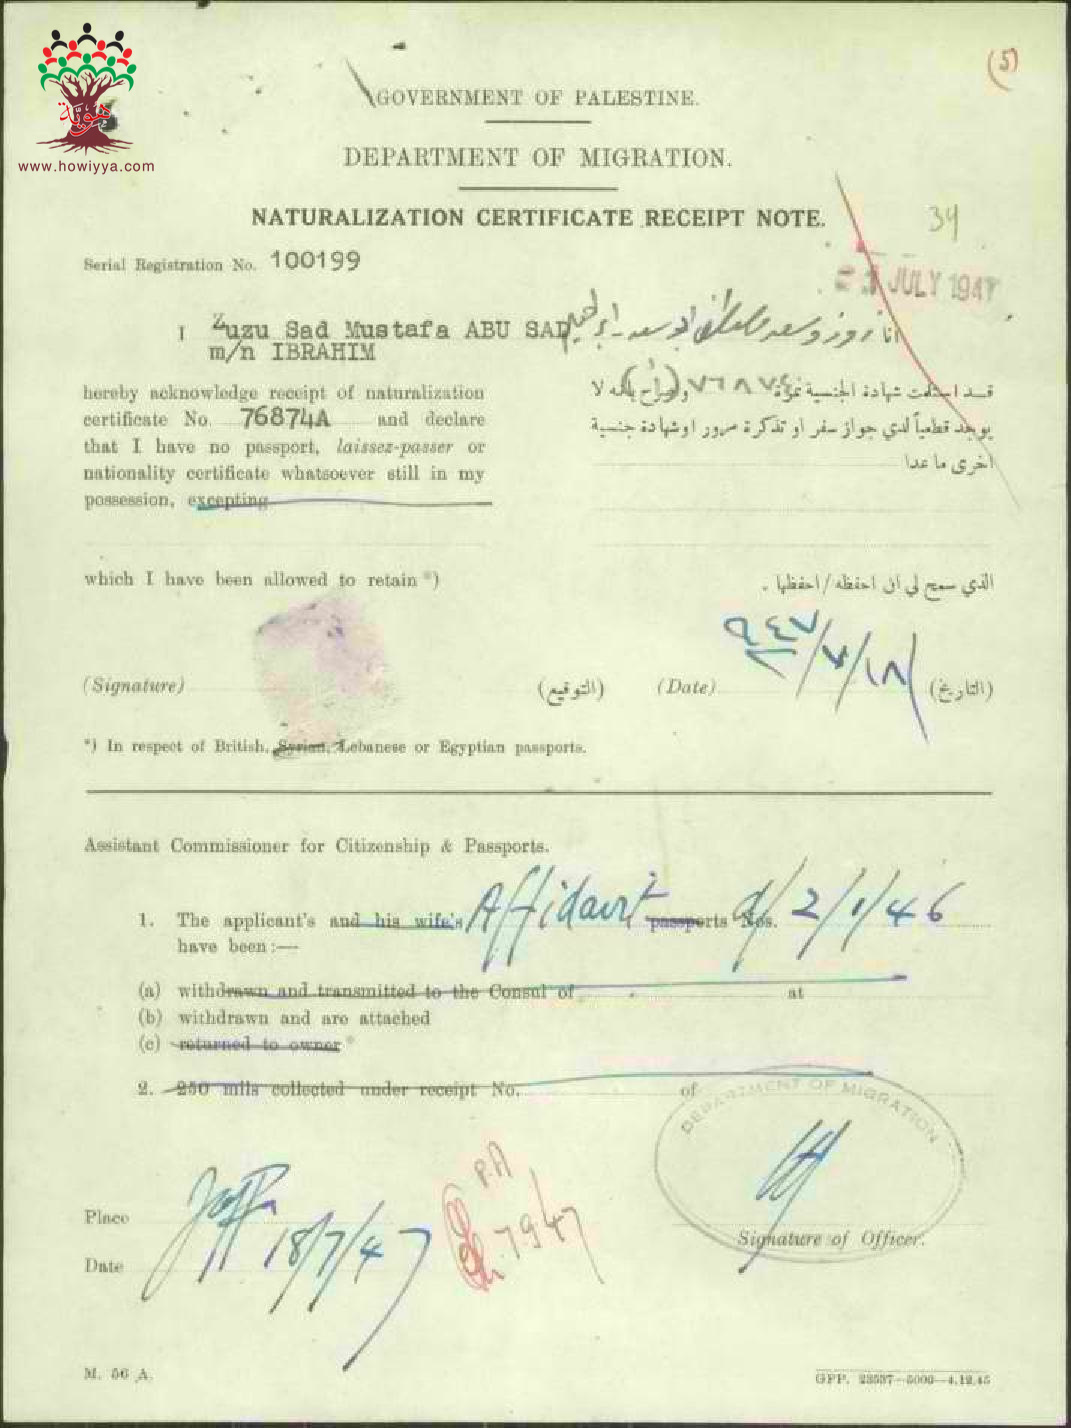 هوية
www.howiyya.com
(5)
GOVERNMENT OF PALESTINE.
DEPARTMENT OF MIGRATION.
NATURALIZATION CERTIFICATE RECEIPT NOTE.
34
Serial Registration No. 100199
JULY 1947
I Zuzu Sad Mustafa ABU SAD
m/n IBRAHIM
انا
hereby acknowledge receipt of naturalization
certificate No. 76874A and declare
that I have no passport, laissez-passer or
nationality certificate whatsoever still in my
possession, excepting
قد استلمت شهادة الجنسية نمرة ٧٦٨٧٤ (أ) واصرح بانه لا
يوجد قطعياً لدي جواز سفر او تذكرة مرور او شهادة جنسية
اخرى ما عدا
which I have been allowed to retain *)
الذي سمح لي ان احفظه / احفظها .
(Signature) (التوقيع)
(Date) ١٨/٧/٩٤٧ (التاريخ)
*) In respect of British, Syrian, Lebanese or Egyptian passports.
Assistant Commissioner for Citizenship & Passports.
1. The applicant's and his wife's Affidavit passports Nos. d/2/1/46
have been :—
(a) withdrawn and transmitted to the Consul of at
(b) withdrawn and are attached
(c) returned to owner *
2. 250 mils collected under receipt No. of
DEPARTMENT OF MIGRATION
P.A
7 947
Place Jaffa
Date 18/7/47
Signature of Officer.
M. 56 A.
GPP. 23537—5000—4.12.45